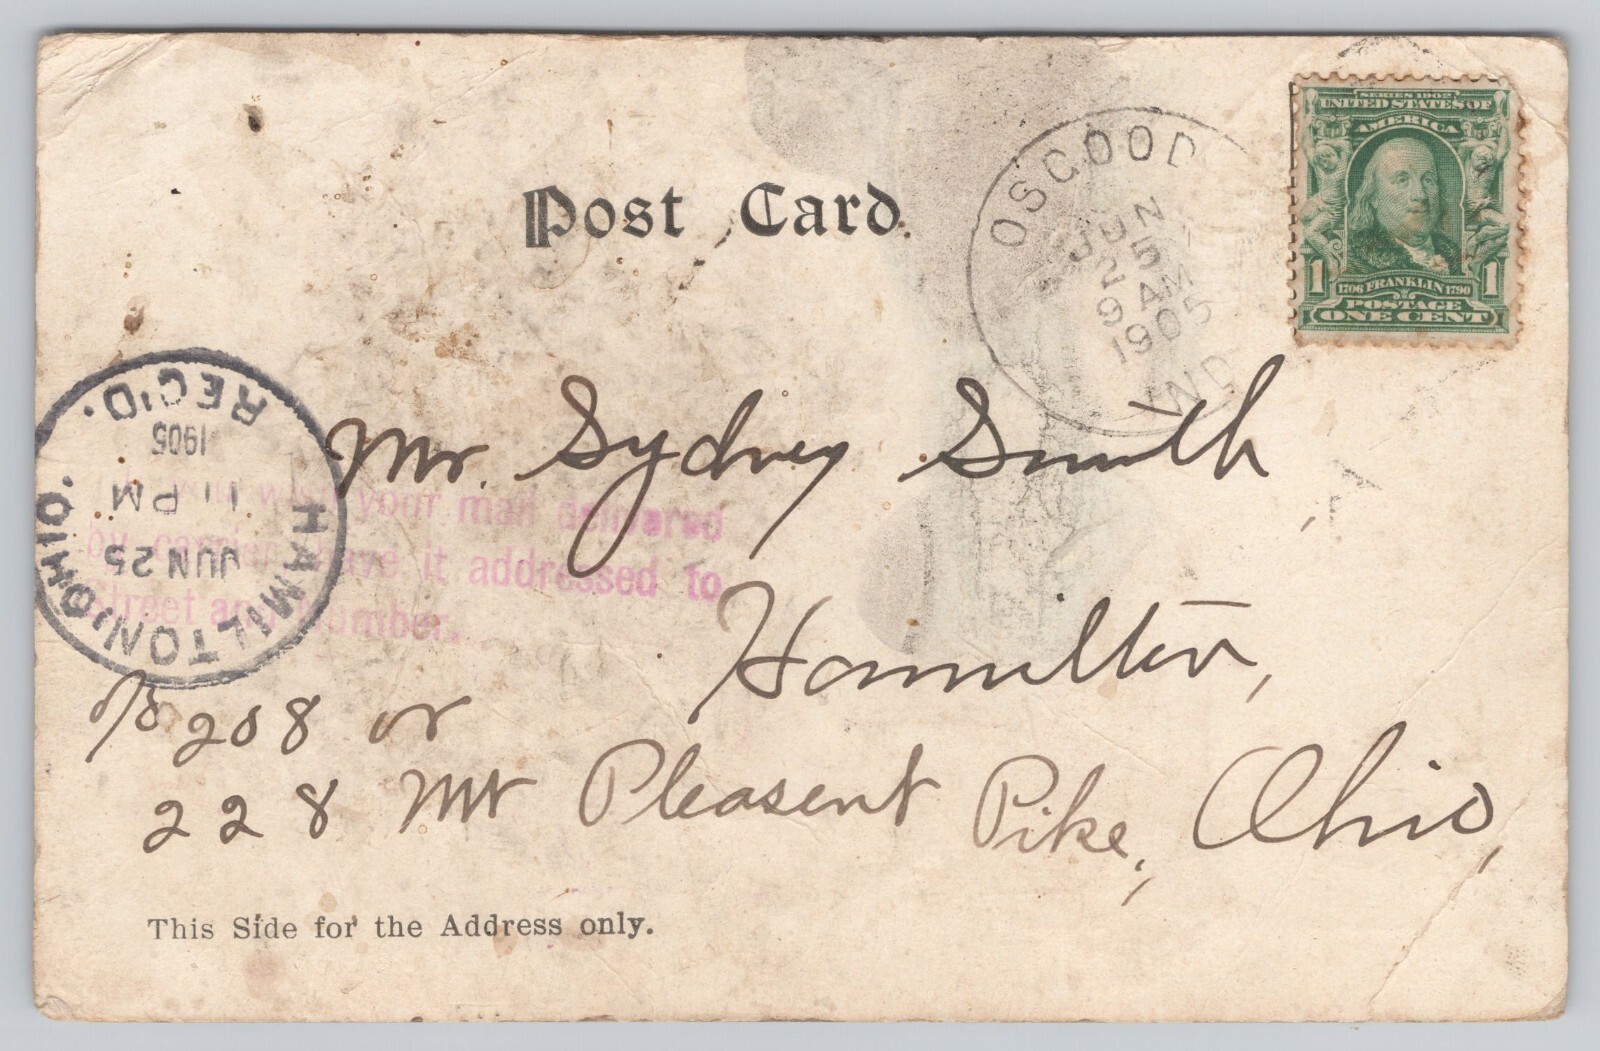 Post Card.
OSGOOD
JUN
5
2
9 AM
1905
IND
SERIES 1902
UNITED STATES OF
AMERICA
1 1
1706 FRANKLIN 1790
POSTAGE
ONE CENT
HAMILTON, OHIO.
JUN 25
11 PM
1905
REC'D.
you wish your mail delivered
by carrier have it addressed to
Street and Number.
Mr. Sydney Smith
Hamilton,
208 or
228 Mt Pleasent Pike, Ohio,
This Side for the Address only.